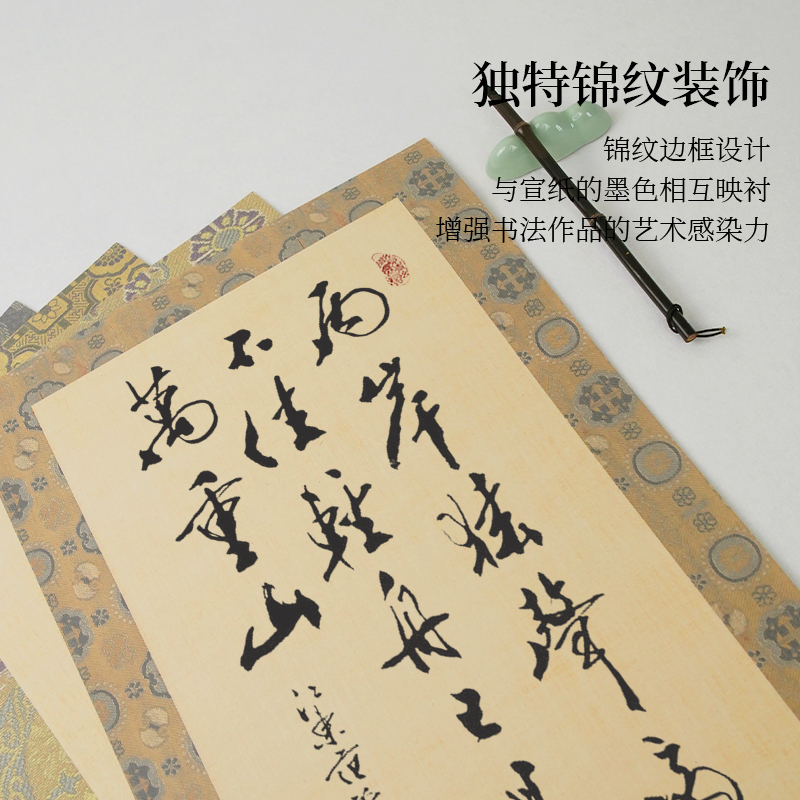 独特锦纹装饰
锦纹边框设计
与宣纸的墨色相互映衬
增强书法作品的艺术感染力
兩岸猿聲
不住輕舟已
萬重山